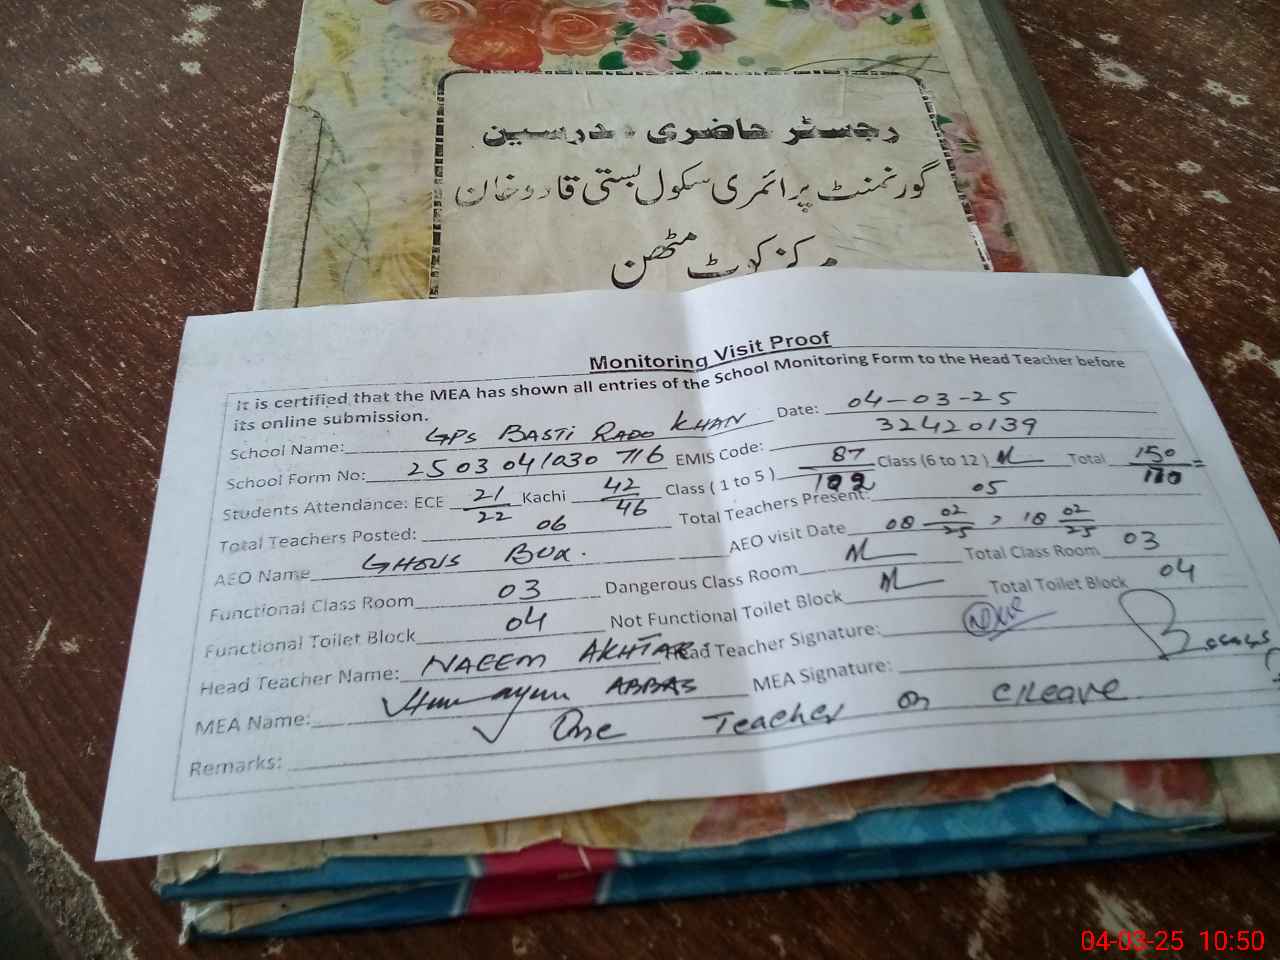 رجسٹر حاضری مدرسین
گورنمنٹ پرائمری سکول بستی قادو خان
مرکز کوٹ مٹھن
Monitoring Visit Proof
It is certified that the MEA has shown all entries of the School Monitoring Form to the Head Teacher before
its online submission.
School Name: GPS BASTI RADO KHAN Date: 04-03-25
School Form No: 2503041030716 EMIS Code: 32420139
Students Attendance: ECE 21/22 Kachi 42/46 Class ( 1 to 5 ) 87/102 Class (6 to 12 ) Total 150/170
Total Teachers Posted: 06 Total Teachers Present: 05
AEO Name GHOUS BUX. AEO visit Date 08 02/25 > 18 02/25
Functional Class Room 03 Dangerous Class Room Total Class Room 03
Functional Toilet Block 04 Not Functional Toilet Block Total Toilet Block 04
Head Teacher Name: NAEEM AKHTAR Head Teacher Signature:
MEA Name: Humayun ABBAS MEA Signature:
Remarks: One Teacher on C/Leave
04-03-25 10:50